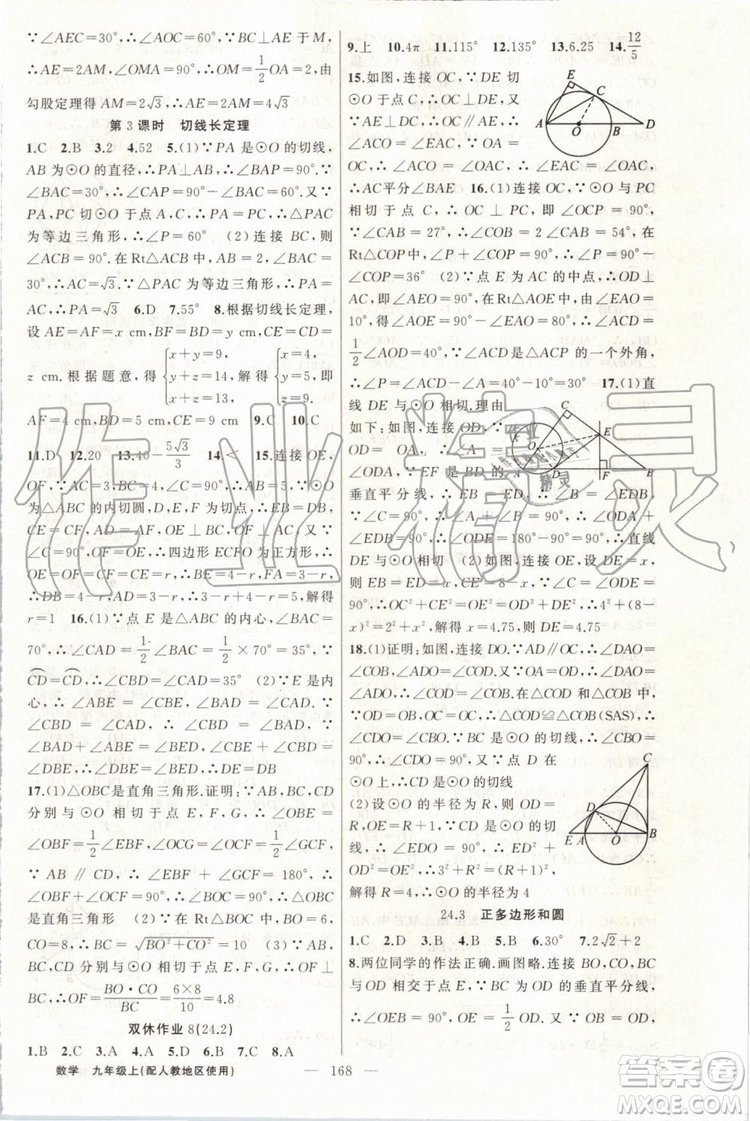 ∵∠AEC=30°,∴∠MAB=30°.∵BC⊥AE于点M,
∴AE=2AM,∠OMA=90°,∴OM=1/2OA=2,由
勾股定理得AM=2√3,∴AE=2AM=4√3
第3课时 切线长定理
1.C 2.B 3.2 4.52 5.(1)∵PA是⊙O的切线,
AB为⊙O的直径,∴PA⊥AB,∴∠PAB=90°.∵
∠BAC=30°,∴∠PAC=90°-∠BAC=60°.又∵
PA,PC切⊙O于点A,C,∴PA=PC,∴△PAC
为等边三角形,∴∠P=60° (2)连接BC,则
∠ACB=90°,在Rt△ACB中,AB=2,∠BAC=
30°,∴BC=1,AC=√3,∵△PAC为等边三角形,
∴PA=AC,∴PA=√3 6.D 7.55° 8.根据切线长定理,
设AE=AF=x cm,BF=BD=y cm,CE=CD=
z cm.根据题意,得{x+y=9, y+z=14, x+z=13,解得{x=4, y=5, z=9,即
AF=4 cm,BD=5 cm,CE=9 cm 9.C 10.C
11.D 12.20 13.40-5√3/3 14.< 15.连接OE,
OF,∵∠C=90°,AC=3,BC=4,∴AB=5.∵⊙O为
△ABC的内切圆,D,E,F为切点,∴EB=DB,
CE=CF,AD=AF,OE⊥BC,OF⊥AC.又∵
∠C=90°,OF=OE,∴四边形ECFO为正方形,∴
OE=OF=CF=CE=r,∴BE=4-r,FA=3-r,
∴DB=4-r,AD=3-r,∴3-r+4-r=5,解得
r=1 16.(1)∵点E是△ABC的内心,∠BAC=
70°,∴∠CAD=1/2∠BAC=1/2×70°=35°.∵
CD=CD,∴∠CBD=∠CAD=35° (2)∵E是内
心,∴∠ABE=∠CBE,∠BAD=∠CAD.∵
∠CBD=∠CAD,∴∠CBD=∠BAD.∵∠BAD
+∠ABE=∠BED,∠CBE+∠CBD=∠DBE,
∴∠DBE=∠BED,∴DE=DB
17.(1)△OBC是直角三角形.证明:∵AB,BC,CD
分别与⊙O相切于点E,F,G,∴∠OBE=
∠OBF=1/2∠EBF,∠OCG=∠OCF=1/2∠GCF,
∵AB∥CD,∴∠EBF+∠GCF=180°,∴
∠OBF+∠OCF=90°,∴∠BOC=90°,∴△OBC是
直角三角形 (2)∵在Rt△BOC中,BO=6,
CO=8,∴BC=√(BO²+CO²)=10 (3)∵AB,BC,
CD分别与⊙O相切于点E,F,G,∴OF⊥BC,
∴OF=BO·CO/BC=6×8/10=4.8
双休作业8(24.2)
1.B 2.C 3.A 4.D 5.B 6.C 7.C 8.A
9.上 10.4π 11.115° 12.135° 13.6.25 14.12/5
15.如图,连接OC,∵DE切
⊙O于点C,∴OC⊥DE.又
∵AE⊥DE,∴OC∥AE,∴
∠CAE=∠OCA.又∵OC=
OA,∴∠OCA=∠OAC,
∴∠OAC=∠CAE,
∴AC平分∠BAE 16.(1)连接OC,∵⊙O与PC
相切于点C,∴OC⊥PC,即∠OCP=90°,∵
∠CAB=27°,∴∠COB=2∠CAB=54°.在
Rt△COP中,∠P+∠COP=90°,∴∠P=90°-
∠COP=36° (2)∵E为AC的中点,∴OD⊥
AC,即∠AEO=90°,在Rt△AOE中,由∠EAO=
10°,得∠AOE=90°-∠EAO=80°,∴∠ACD=
1/2∠AOD=40°,∵∠ACD是△ACP的一个外角,
∴∠P=∠ACD-∠A=40°-10°=30° 17.(1)直
线DE与⊙O相切.理由
如下:如图,连接OD,∵
OD=OA,∴∠A=
∠ODA,∵EF是BD的
垂直平分线,∴EB=ED,∴∠B=∠EDB.
∵∠C=90°,∴∠A+∠B=90°,∴∠ODA+
∠EDB=90°,∴∠ODE=180°-90°=90°,∴直线
DE与⊙O相切 (2)如图,连接OE,设DE=x,
则EB=ED=x,CE=8-x,∵∠C=∠ODE=
90°,∴OC²+CE²=OE²=OD²+DE²,∴4²+(8-
x)²=2²+x²,解得x=4.75,则DE=4.75
18.(1)证明:如图,连接DO.∵AD∥OC,∴∠DAO=
∠COB,∠ADO=∠COD.又∵OA=OD,∴∠DAO
=∠ADO,∴∠COD=∠COB.在△COD和△COB中,
∵OD=OB,OC=OC,∴△COD≌△COB(SAS),∴
∠CDO=∠CBO.∵BC是⊙O的切线,∴∠CBO=
90°,∴∠CDO=90°,∴OD⊥
CD,∴CD是⊙O的切线
(2)设⊙O的半径为R,则OD=
R,OE=R+1,∵CD是⊙O的切
线,∴∠EDO=90°,∴ED²+
OD²=OE²,∴3²+R²=(R+1)²,
解得R=4,∴⊙O的半径为4
24.3 正多边形和圆
1.C 2.D 3.A 4.B 5.B 6.30° 7.2√2+2
8.两位同学的作法正确.画图略.连接BO,BD,CO,
设OA与BC相交于点E,∵BC垂直平分OD,
∴∠OEB=90°,OE=1/2OD,∵OB=OD,
数学 九年级上(配人教地区使用)
168